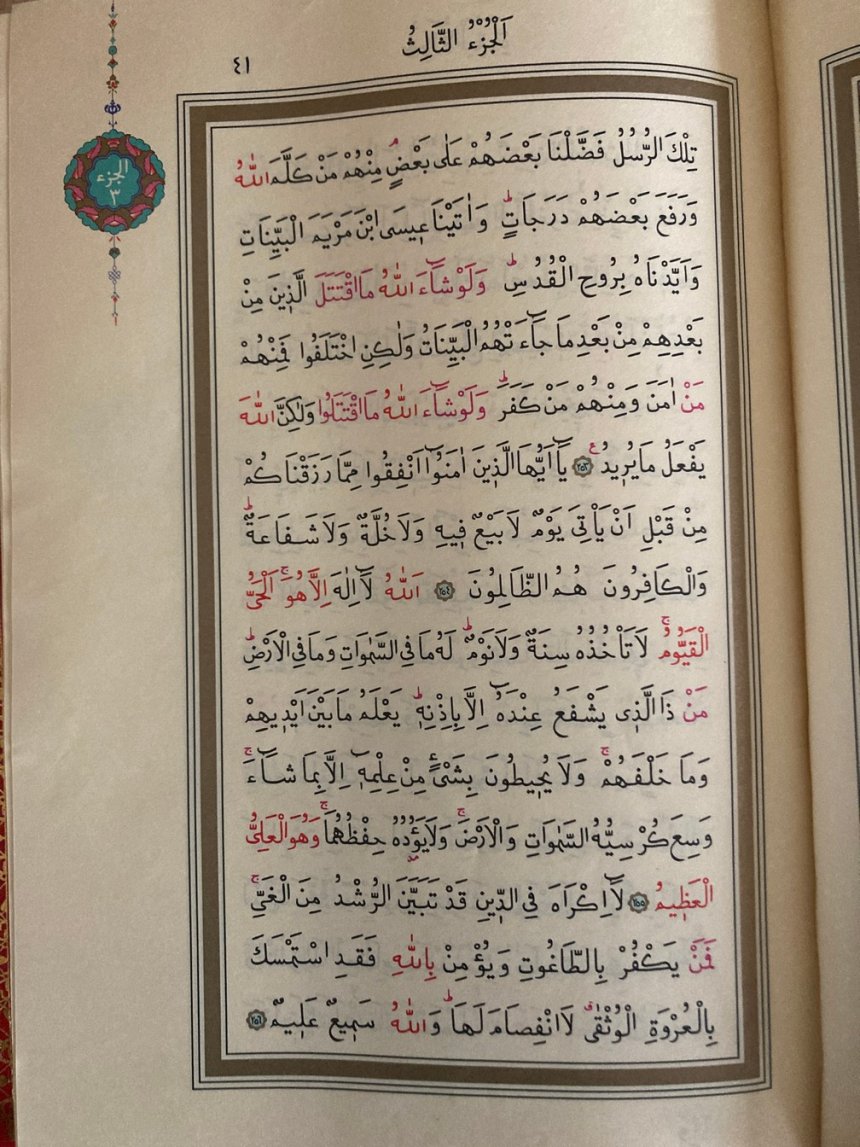 اَلْجُزْءُ الثَّالِثُ
٤١
الجزء
٣
تِلْكَ الرُّسُلُ فَضَّلْنَا بَعْضَهُمْ عَلٰى بَعْضٍۢ مِنْهُمْ مَنْ كَلَّمَ اللّٰهُ
وَرَفَعَ بَعْضَهُمْ دَرَجَاتٍۜ وَاٰتَيْنَا ع۪يسَى ابْنَ مَرْيَمَ الْبَيِّنَاتِ
وَاَيَّدْنَاهُ بِرُوحِ الْقُدُسِۜ وَلَوْ شَٓاءَ اللّٰهُ مَا اقْتَتَلَ الَّذ۪ينَ مِنْ
بَعْدِهِمْ مِنْ بَعْدِ مَا جَٓاءَتْهُمُ الْبَيِّنَاتُ وَلٰكِنِ اخْتَلَفُوا فَمِنْهُمْ
مَنْ اٰمَنَ وَمِنْهُمْ مَنْ كَفَرَۜ وَلَوْ شَٓاءَ اللّٰهُ مَا اقْتَتَلُوا وَلٰكِنَّ اللّٰهَ
يَفْعَلُ مَا يُر۪يدُ۟ ﴿٢٥٣﴾ يَٓا اَيُّهَا الَّذ۪ينَ اٰمَنُٓوا اَنْفِقُوا مِمَّا رَزَقْنَاكُمْ
مِنْ قَبْلِ اَنْ يَأْتِيَ يَوْمٌ لَا بَيْعٌ ف۪يهِ وَلَا خُلَّةٌ وَلَا شَفَاعَةٌۜ
وَالْكَافِرُونَ هُمُ الظَّالِمُونَ ﴿٢٥٤﴾ اَللّٰهُ لَٓا اِلٰهَ اِلَّا هُوَۚ اَلْحَيُّ
الْقَيُّومُۚ لَا تَأْخُذُهُ سِنَةٌ وَلَا نَوْمٌۜ لَهُ مَا فِي السَّمٰوَاتِ وَمَا فِي الْاَرْضِۜ
مَنْ ذَا الَّذ۪ي يَشْفَعُ عِنْدَهُٓ اِلَّا بِاِذْنِه۪ۜ يَعْلَمُ مَا بَيْنَ اَيْد۪يهِمْ
وَمَا خَلْفَهُمْۚ وَلَا يُح۪يطُونَ بِشَيْءٍ مِنْ عِلْمِه۪ٓ اِلَّا بِمَا شَٓاءَۚ
وَسِعَ كُرْسِيُّهُ السَّمٰوَاتِ وَالْاَرْضَۚ وَلَا يَؤُ۫دُهُ حِفْظُهُمَاۚ وَهُوَ الْعَلِيُّ
الْعَظ۪يمُ ﴿٢٥٥﴾ لَٓا اِكْرَاهَ فِي الدّ۪ينِ قَدْ تَبَيَّنَ الرُّشْدُ مِنَ الْغَيِّۚ
فَمَنْ يَكْفُرْ بِالطَّاغُوتِ وَيُؤْمِنْ بِاللّٰهِ فَقَدِ اسْتَمْسَكَ
بِالْعُرْوَةِ الْوُثْقٰىۗ لَا انْفِصَامَ لَهَاۜ وَاللّٰهُ سَم۪يعٌ عَل۪يمٌ ﴿٢٥٦﴾